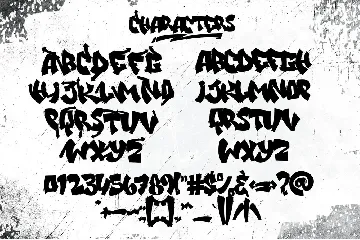 CHARACTERS
ABCDEFG ABCDEFGH
HIJKLMNO IJKLMNOP
PQRSTUV QRSTUV
WXYZ WXYZ
0123456789